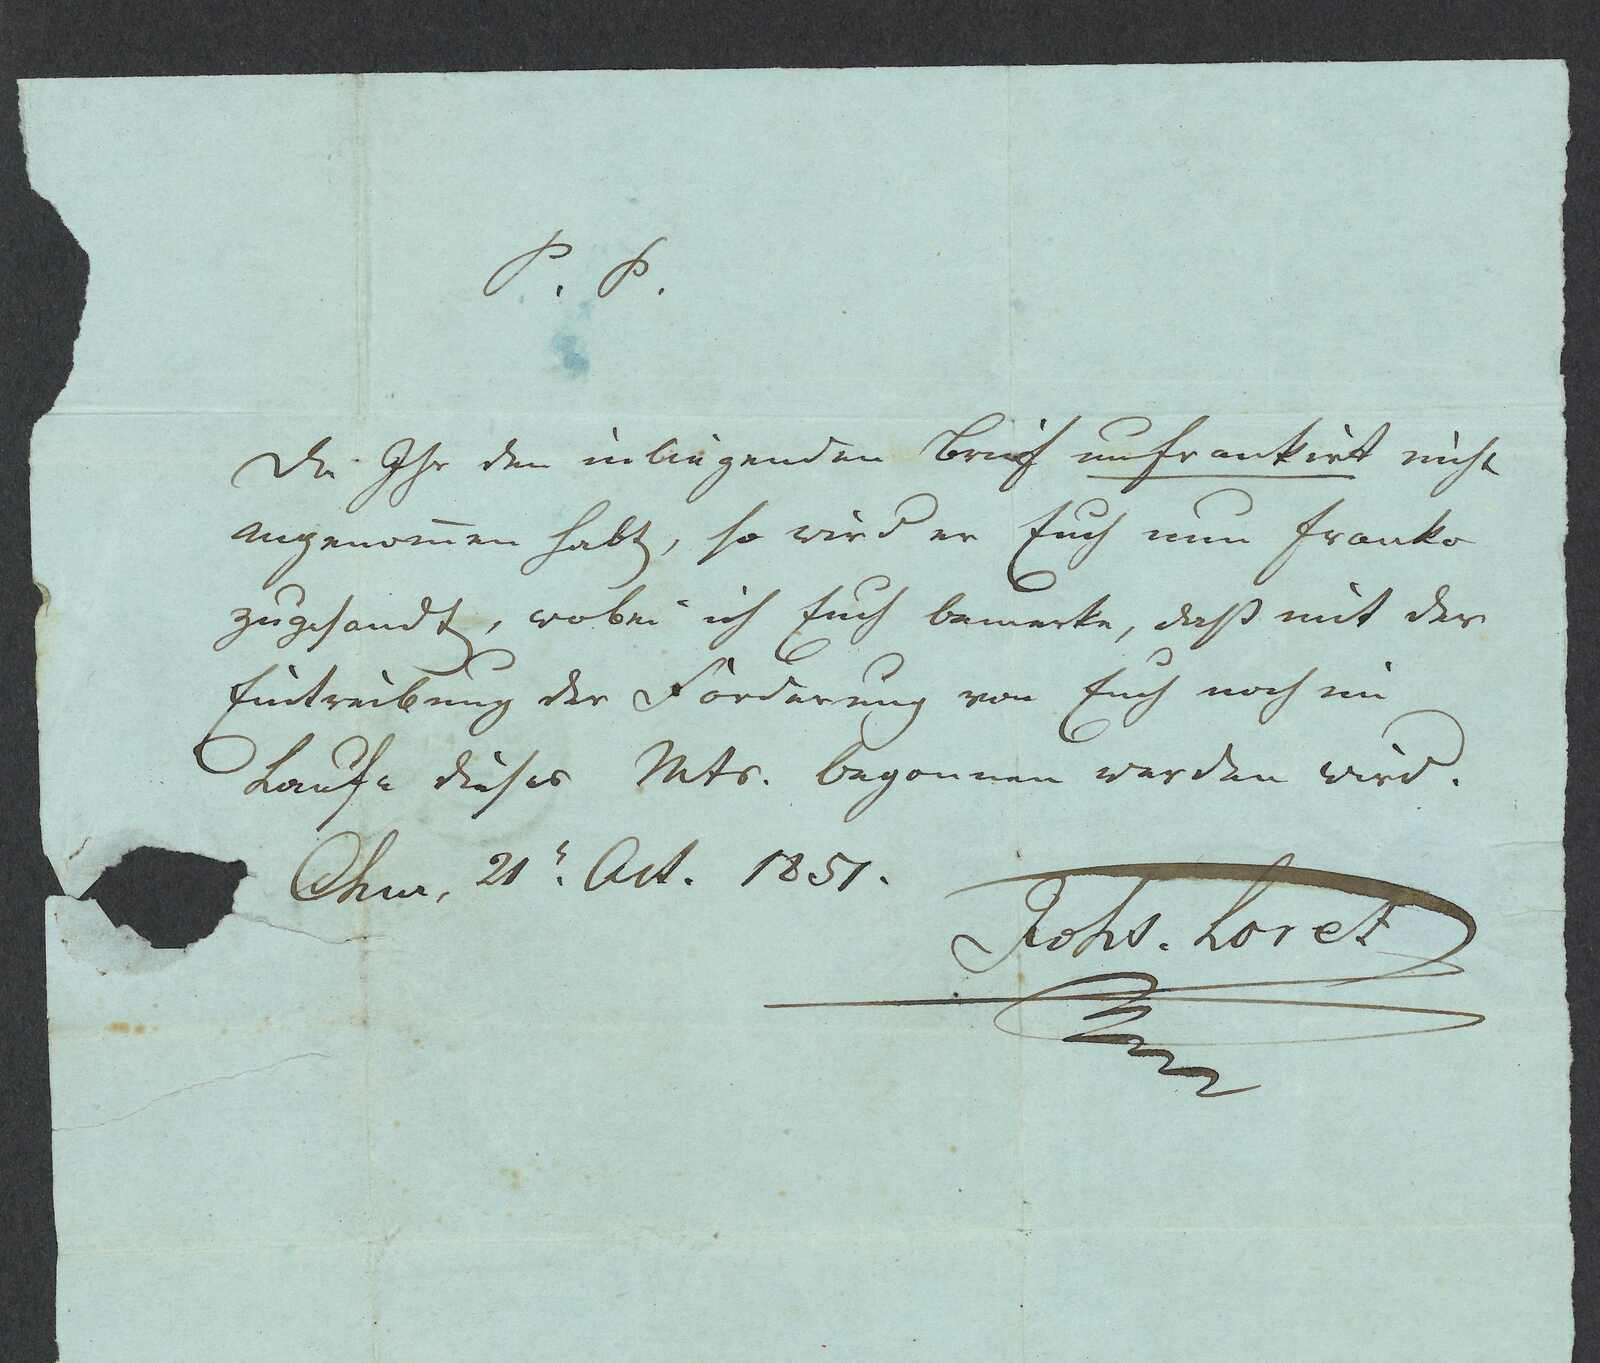 P. P.
Da Ihr den inliegenden Brief unfrankirt nicht
angenom̅en habt, so wird er Euch nun franko
zugesandt, wobei ich Euch bemerke, daß mit der
Eintreibung der Forderung von Euch noch im
Laufe dieses Mts. begonnen werden wird.
Chur, 21t. Oct. 1851.
Johs. Loret